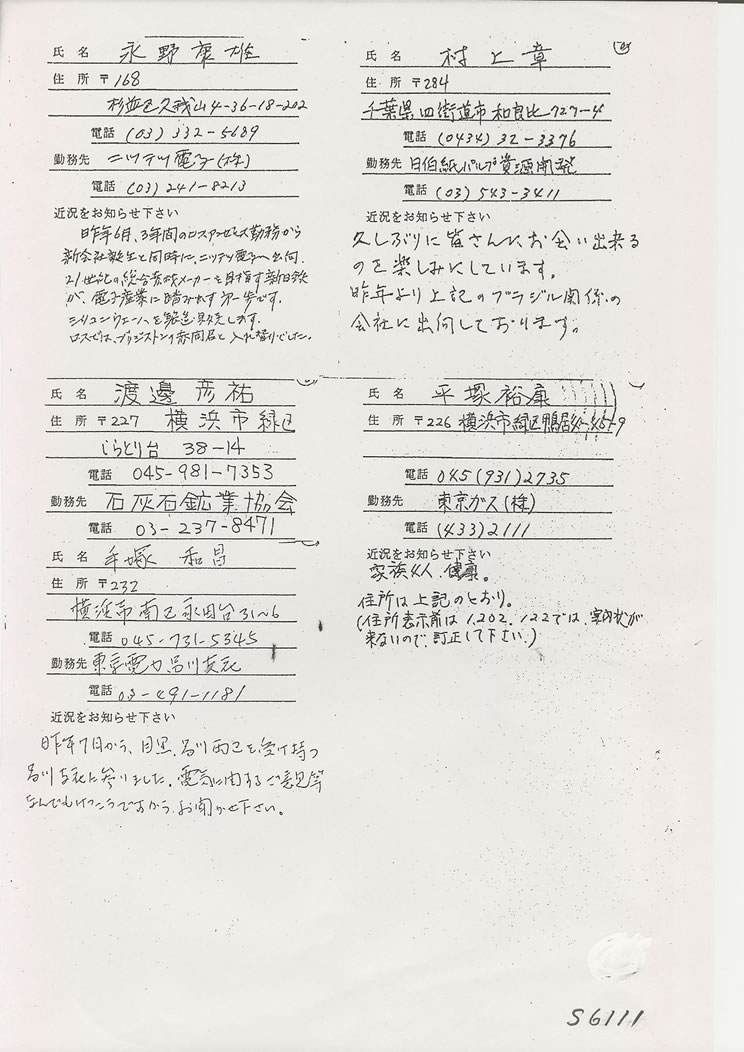 氏 名 永野康雄
住 所 〒168
杉並区久我山4-36-18-202
電話 (03) 332-5689
勤務先 ニッテツ電子(株)
電話 (03) 241-8213
近況をお知らせ下さい
昨年6月、3年間のロスアンゼルス勤務から
新会社誕生と同時に、ニッテツ電子へ出向。
21世紀の総合素材メーカーを目指す新日鉄
が、電子産業に踏み出す第一歩です。
シリコンウェハーを製造販売します。
ロスでは、ブリジストンの赤間君と入れ替りでした。
氏 名 渡邊彦祐
住 所 〒227 横浜市緑区
しらとり台 38-14
電話 045-981-7353
勤務先 石灰石鉱業協会
電話 03-237-8471
氏 名 手塚 和昌
住 所 〒232
横浜市南区永田台31~6
電話 045-731-5345
勤務先 東京電力品川支社
電話 03-491-1181
近況をお知らせ下さい
昨年7月から、目黒、品川両区を受け持つ
品川支社に参りました。電気に関するご意見等
なんでもけっこうですから、お聞かせ下さい。
氏 名 村上章
住 所 〒284
千葉県四街道市和良比727-4
電話 (0434) 32-3376
勤務先 日伯紙パルプ資源開発
電話 (03) 543-3411
近況をお知らせ下さい
久しぶりに皆さんにお会い出来る
のを楽しみにしています。
昨年より上記のブラジル関係の
会社に出向しております。
氏 名 平塚裕康
住 所 〒226 横浜市緑区鴨居4-45-9
電話 045(931)2735
勤務先 東京ガス(株)
電話 (433)2111
近況をお知らせ下さい
家族4人、健康。
住所は上記のとおり。
(住所表示前は1,202,122では、案内状が
来ないので、訂正して下さい。)
S6111